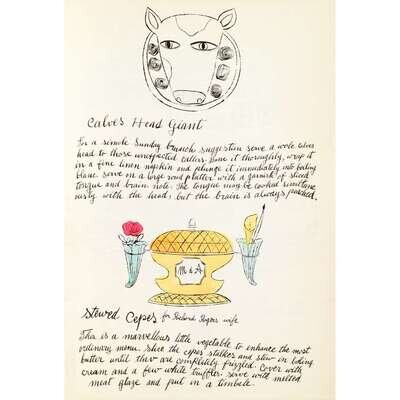 Calves Head Giant
For a simple Sunday brunch suggestion serve a wole calves
head to those unexpected callers. Bone it thoroughly, wrap it
in a fine linen napkin and plunge it immediately into boiling
blanc. serve on a large round platter with a garnish of sliced
tongue and brain. note: The tongue may be cooked simultane
ously with the head; but the brain is always poached.
M & A
Stewed Cepes for Richard wife
This is a marvellous little vegetable to enhance the most
ordinary menu. Slice the cepes stalkes and stew in boiling
butter until they are completely frizzled. Cover with
cream and a few white truffles. serve with melted
meat glaze and put in a timbale.